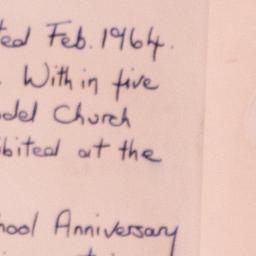 ted Feb. 1964.
. Within five
odel Church
bited at the
hool Anniversary